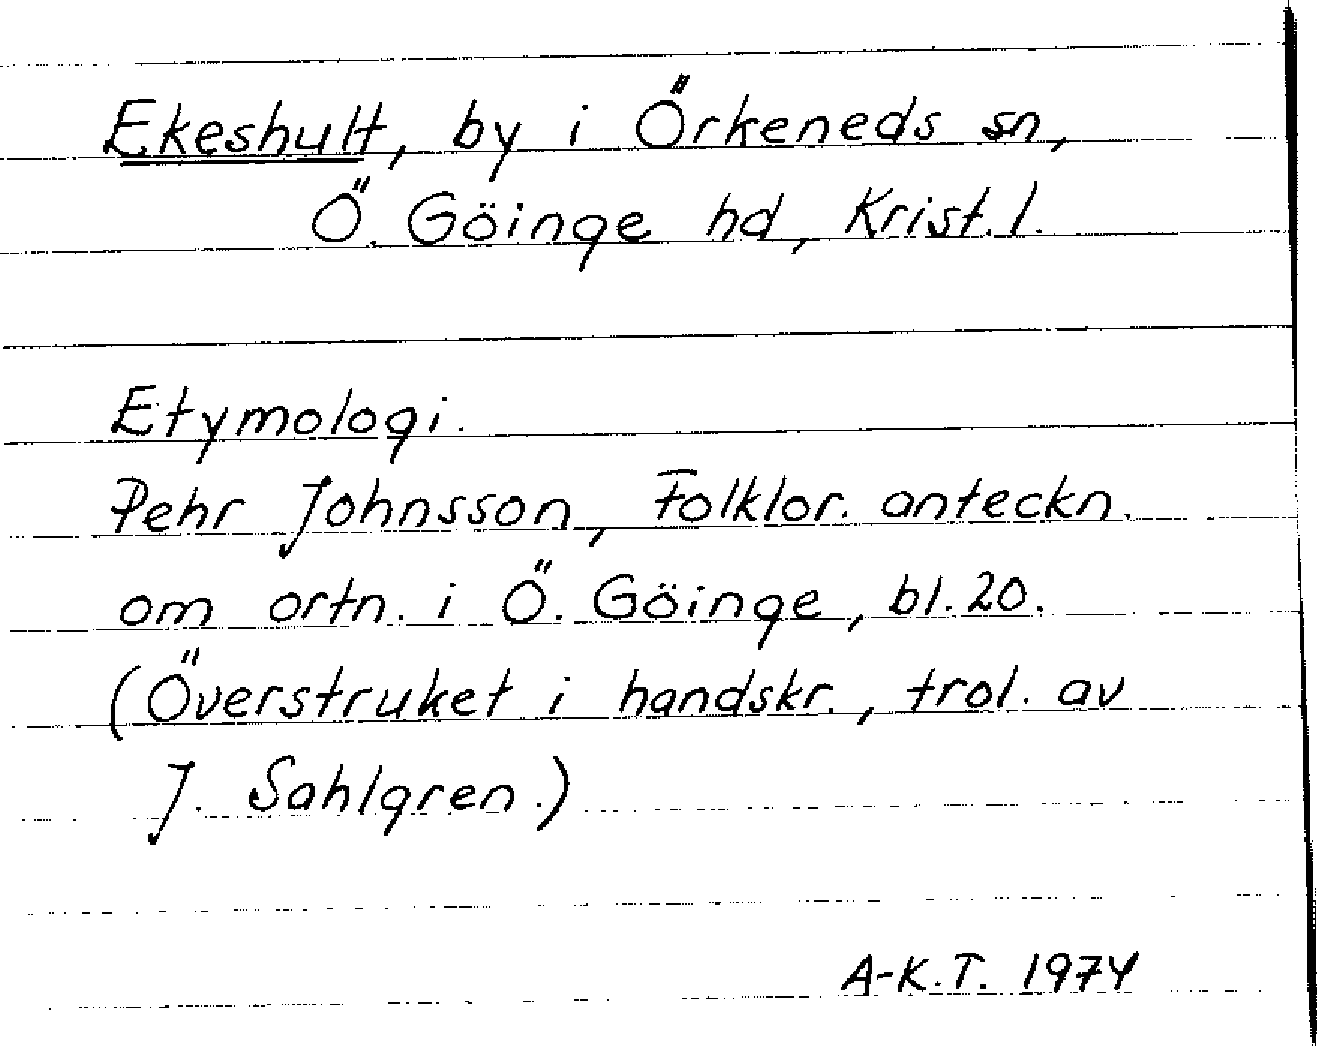 Ekeshult, by i Örkeneds sn,
Ö. Göinge hd, Krist. l.
Etymologi.
Pehr Johnsson, Folklor. anteckn.
om ortn. i Ö. Göinge, bl. 20.
(Överstruket i handskr., trol. av
J. Sahlgren.)
A-K.T. 1974